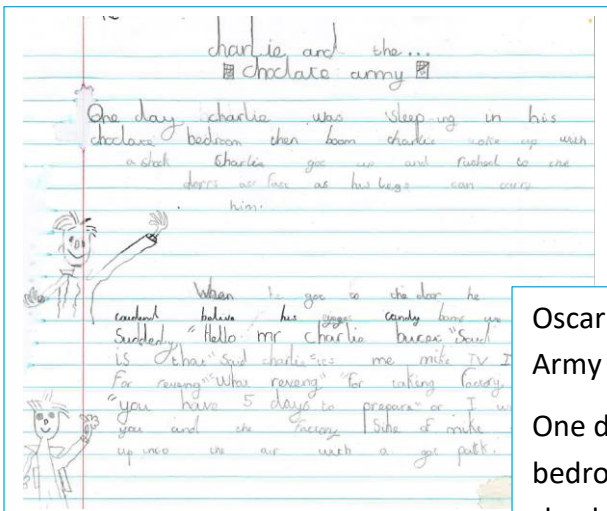 charlie and the...
choclate army
One day charlie was sleep-ing in his
choclate bedroom then boom charlie woke up with
a shock Charlie got up and rushed to the
dorrs as fast as his legs can carre
him.
When he got to the door he
couldent belive his eyes candy bomb we
Suddenly "Hello mr charlie bucex "Said
is that" said charlie "its me mike TV I
For reveng" "What reveng" "for taking factory
"you have 5 days to prepare" or I w
you and the factory! Sike of mike
up into the air with a
Oscar
Army
One d
bedro